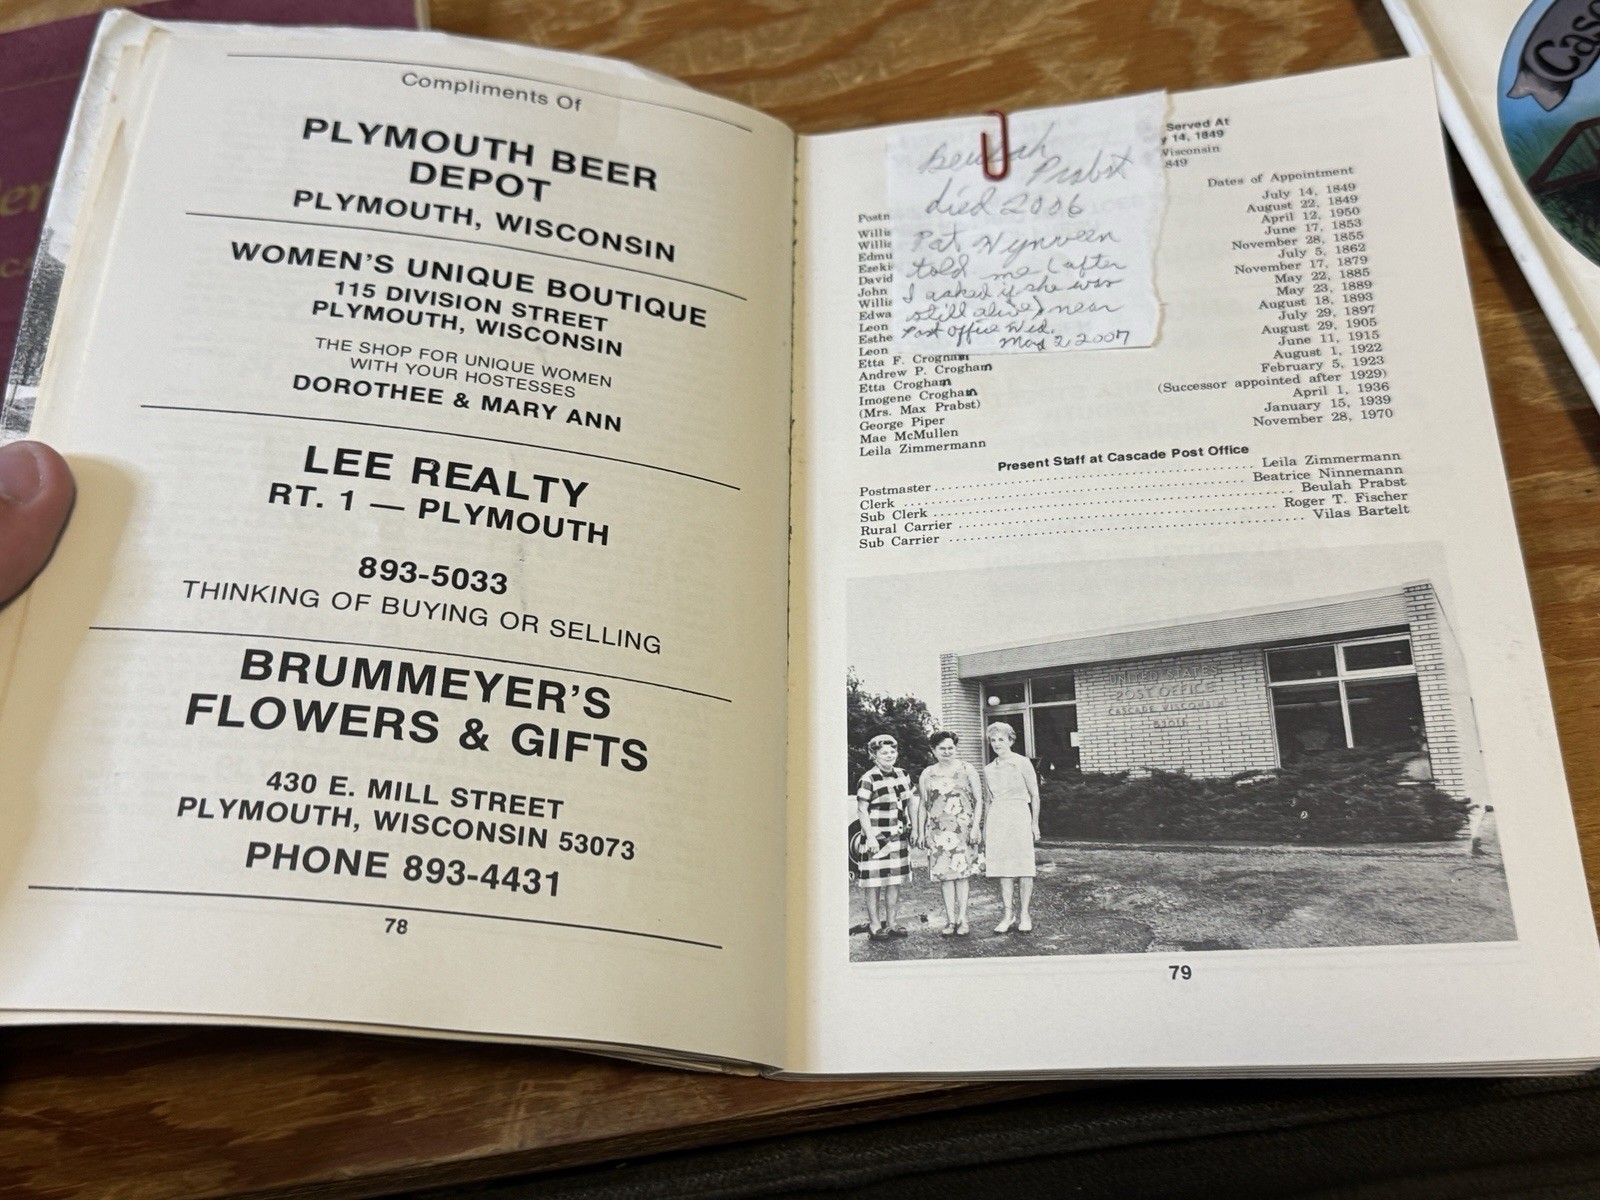 Compliments Of
PLYMOUTH BEER
DEPOT
PLYMOUTH, WISCONSIN
WOMEN'S UNIQUE BOUTIQUE
115 DIVISION STREET
PLYMOUTH, WISCONSIN
THE SHOP FOR UNIQUE WOMEN
WITH YOUR HOSTESSES
DOROTHEE & MARY ANN
LEE REALTY
RT. 1 — PLYMOUTH
893-5033
THINKING OF BUYING OR SELLING
BRUMMEYER'S
FLOWERS & GIFTS
430 E. MILL STREET
PLYMOUTH, WISCONSIN 53073
PHONE 893-4431
78
Beulah
Prabst
died 2006
Pat Wynveen
told me (after
I asked if she was
still alive) near
Post Office Wed.
May 2 2007
Served At
14, 1849
Wisconsin
849
Dates of Appointment
July 14, 1849
August 22, 1849
April 12, 1950
June 17, 1853
November 28, 1855
July 5, 1862
November 17, 1879
May 22, 1885
May 23, 1889
August 18, 1893
July 29, 1897
August 29, 1905
June 11, 1915
August 1, 1922
February 5, 1923
(Successor appointed after 1929)
April 1, 1936
January 15, 1939
November 28, 1970
Postn
Willi
Willi
Edmu
Ezeki
David
John
Willi
Edwa
Leon
Esthe
Leon
Etta F. Crogham
Andrew P. Crogham
Etta Crogham
Imogene Crogham
(Mrs. Max Prabst)
George Piper
Mae McMullen
Leila Zimmermann
Present Staff at Cascade Post Office
Postmaster . . . . . Leila Zimmermann
Clerk . . . . . Beatrice Ninnemann
Sub Clerk . . . . . Beulah Prabst
Rural Carrier . . . . . Roger T. Fischer
Sub Carrier . . . . . Vilas Bartelt
UNITED STATES
POST OFFICE
CASCADE WISCONSIN
53011
79
Cas